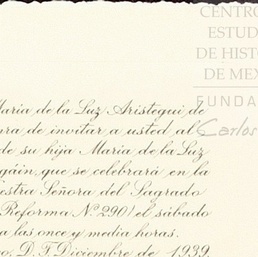 CENTRO
ESTUD
DE HISTO
DE MEX
FUNDA
Carlos
Maria de la Luz Aristegui de
ra de invitar a usted al
de su hija Maria de la Luz
gáin, que se celebrará en la
estra Señora del Sagrado
Reforma Nº 290/ el sábado
a las once y media horas.
o, D. F. Diciembre de 1939.